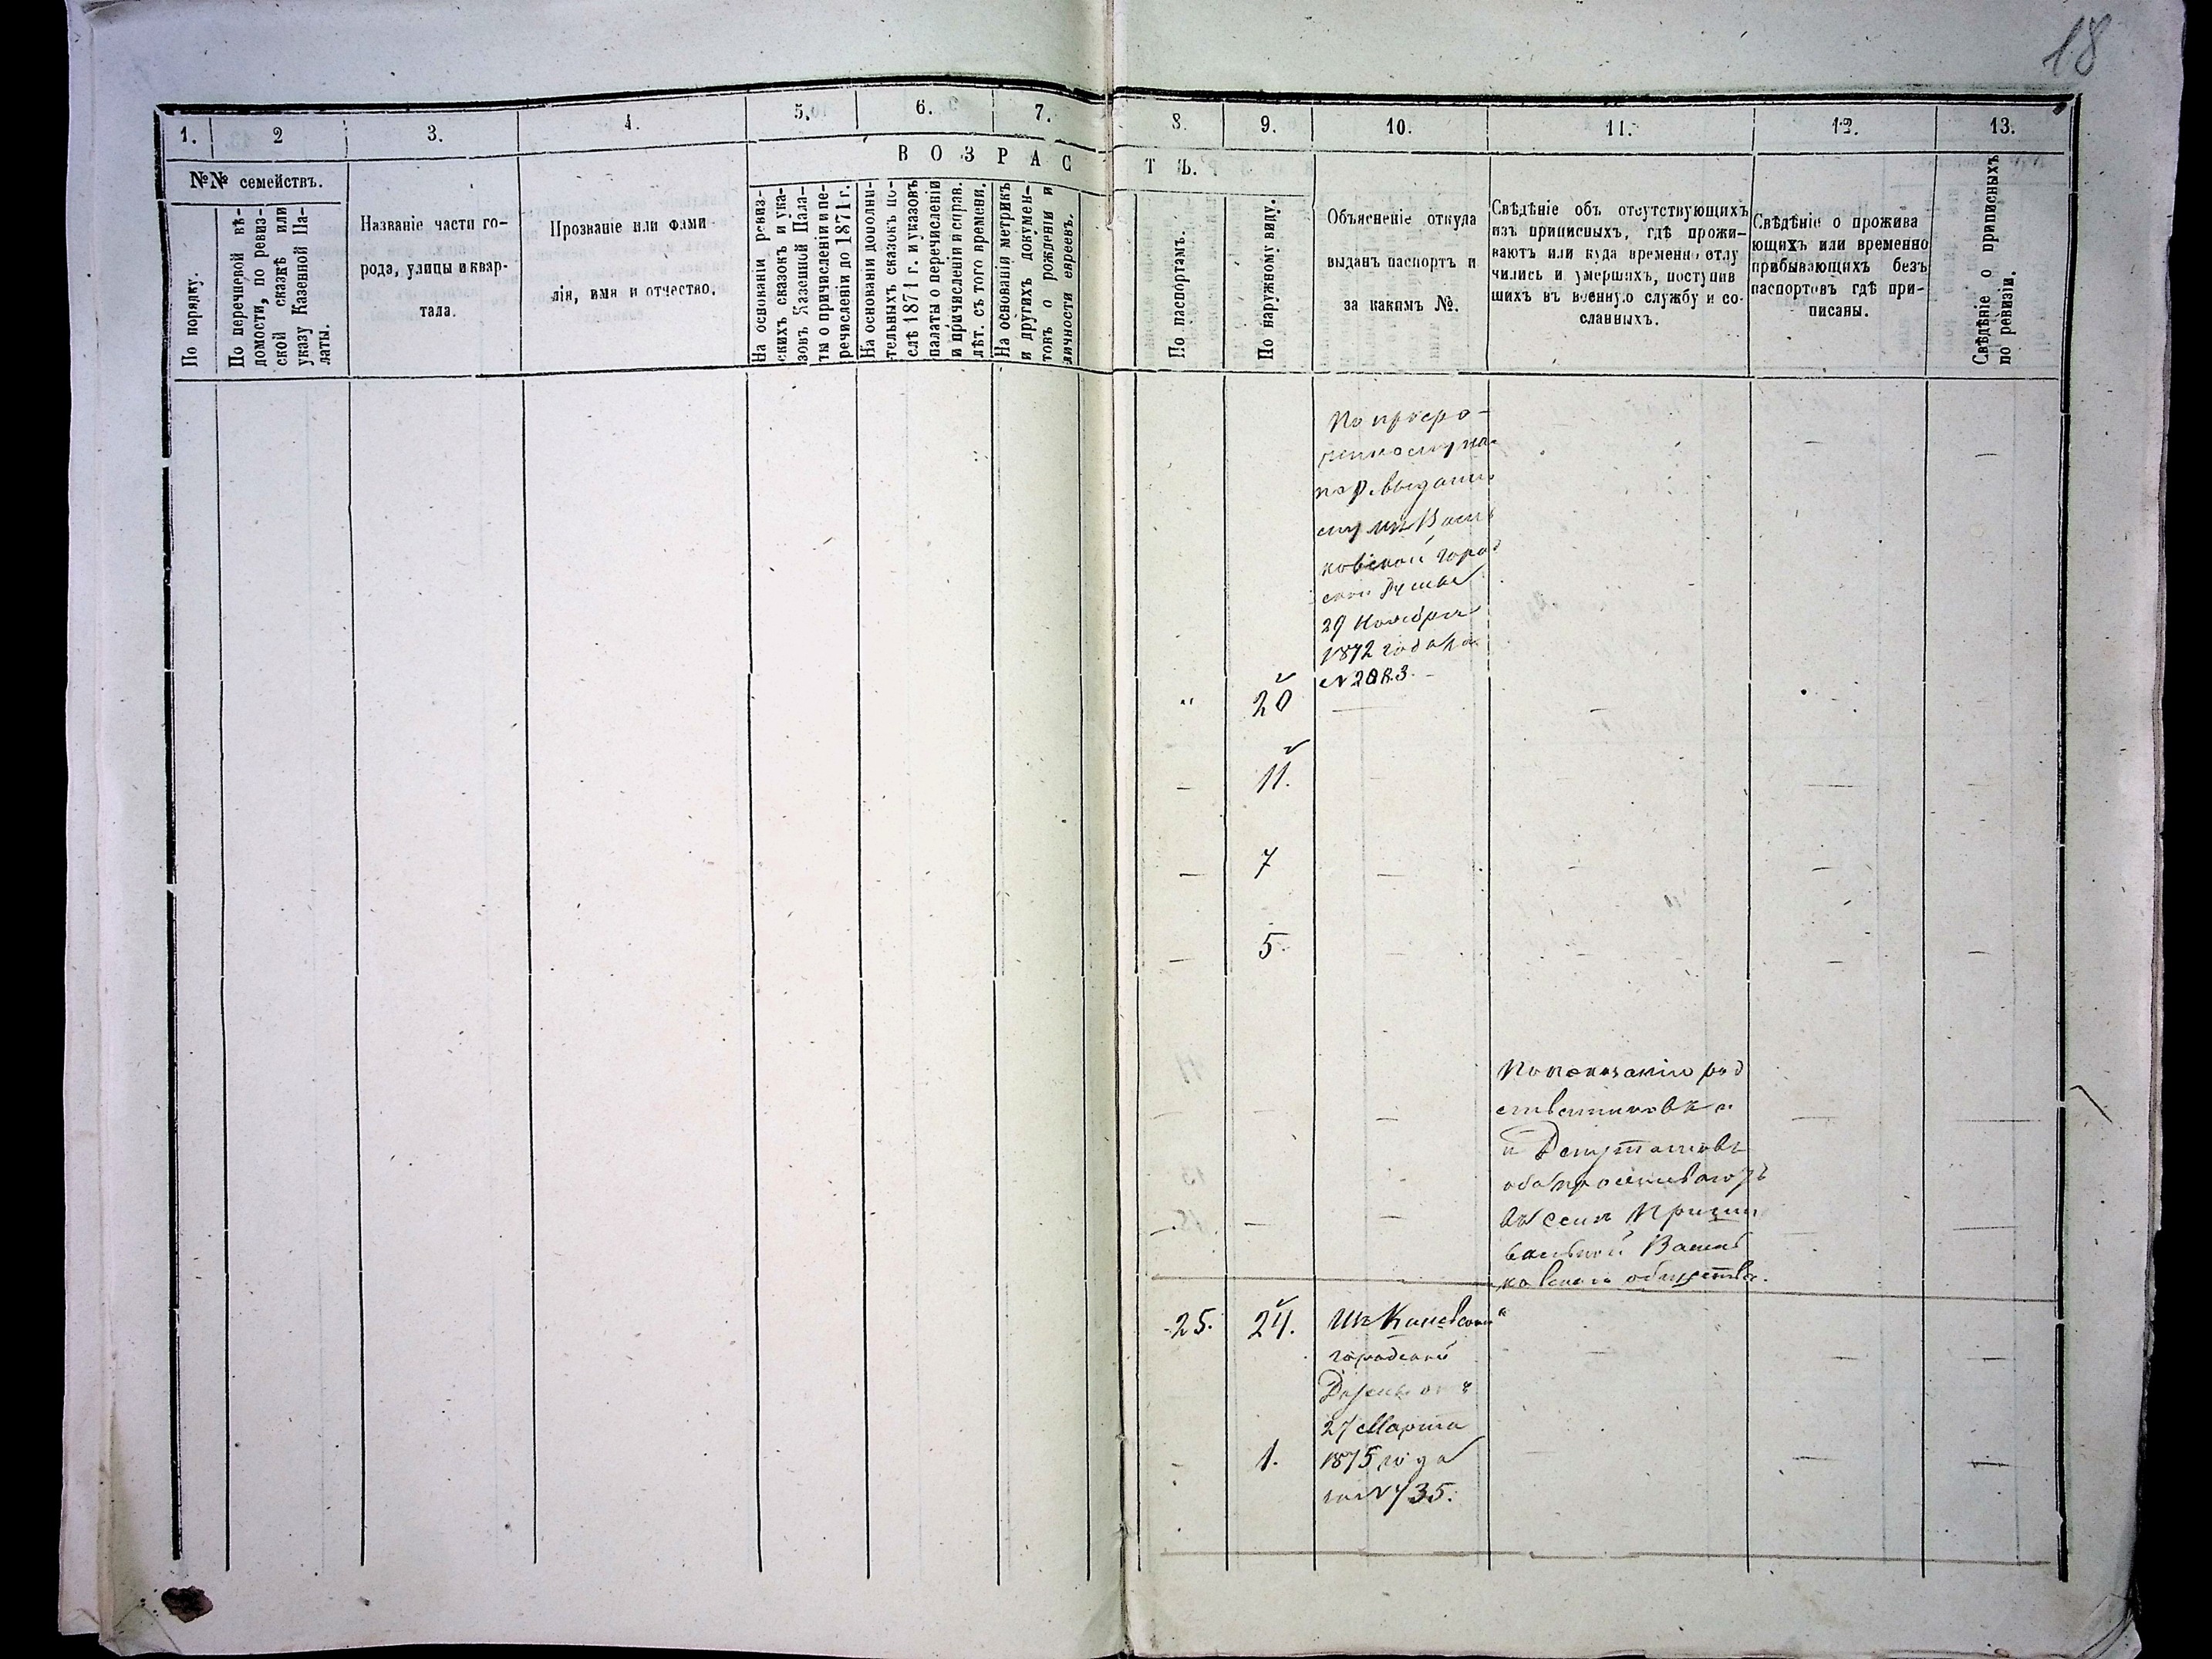 18
1.
2
3.
4.
5.
6.
7.
8.
9.
10.
11.
12.
13.
ВОЗРАС
ТѢ.
№№ семействъ.
По порядку.
По перечневой вѣ-
домости, по ревиз-
ской сказкѣ или
указу Казенной Па-
латы.
Названіе части го-
рода, улицы и квар-
тала.
Прозваніе или фами-
лія, имя и отчество.
На основаніи ревиз-
скихъ сказокъ и ука-
зовъ Казенной Пала-
ты о причисленіи и пе-
речисленіи до 1871 г.
На основаніи дополни-
тельныхъ сказокъ по-
слѣ 1871 г. и указовъ
палаты о перечисленіи
и причисленіи и справ.
лѣт. съ того времени.
На основаніи метрикъ
и другихъ докумен-
товъ о рожденіи и
личности евреевъ.
По паспортамъ.
По наружному виду.
Объясненіе откуда
выданъ паспортъ и
за какимъ №.
Свѣдѣніе объ отсутствующихъ
изъ приписныхъ, гдѣ прожи-
ваютъ или куда временно отлу
чились и умершихъ, поступив
шихъ въ военную службу и со-
сланныхъ.
Свѣдѣніе о прожива
ющихъ или временно
прибывающихъ безъ
паспортовъ гдѣ при-
писаны.
Свѣдѣніе о приписныхъ
по ревизіи.
выданно
му изъ Василь
ковской город
ской Думы
29 Ноября
1872 года за
№ 2083.
" 20
11.
7
5.
По показанію род
ственниковъ
и Депутатовъ
оба проживаютъ
въ
Василь
ковскаго общества.
25. 24. Изъ Каневской
городской
Думы отъ
27 Марта
1. 1875 года
за № 735.